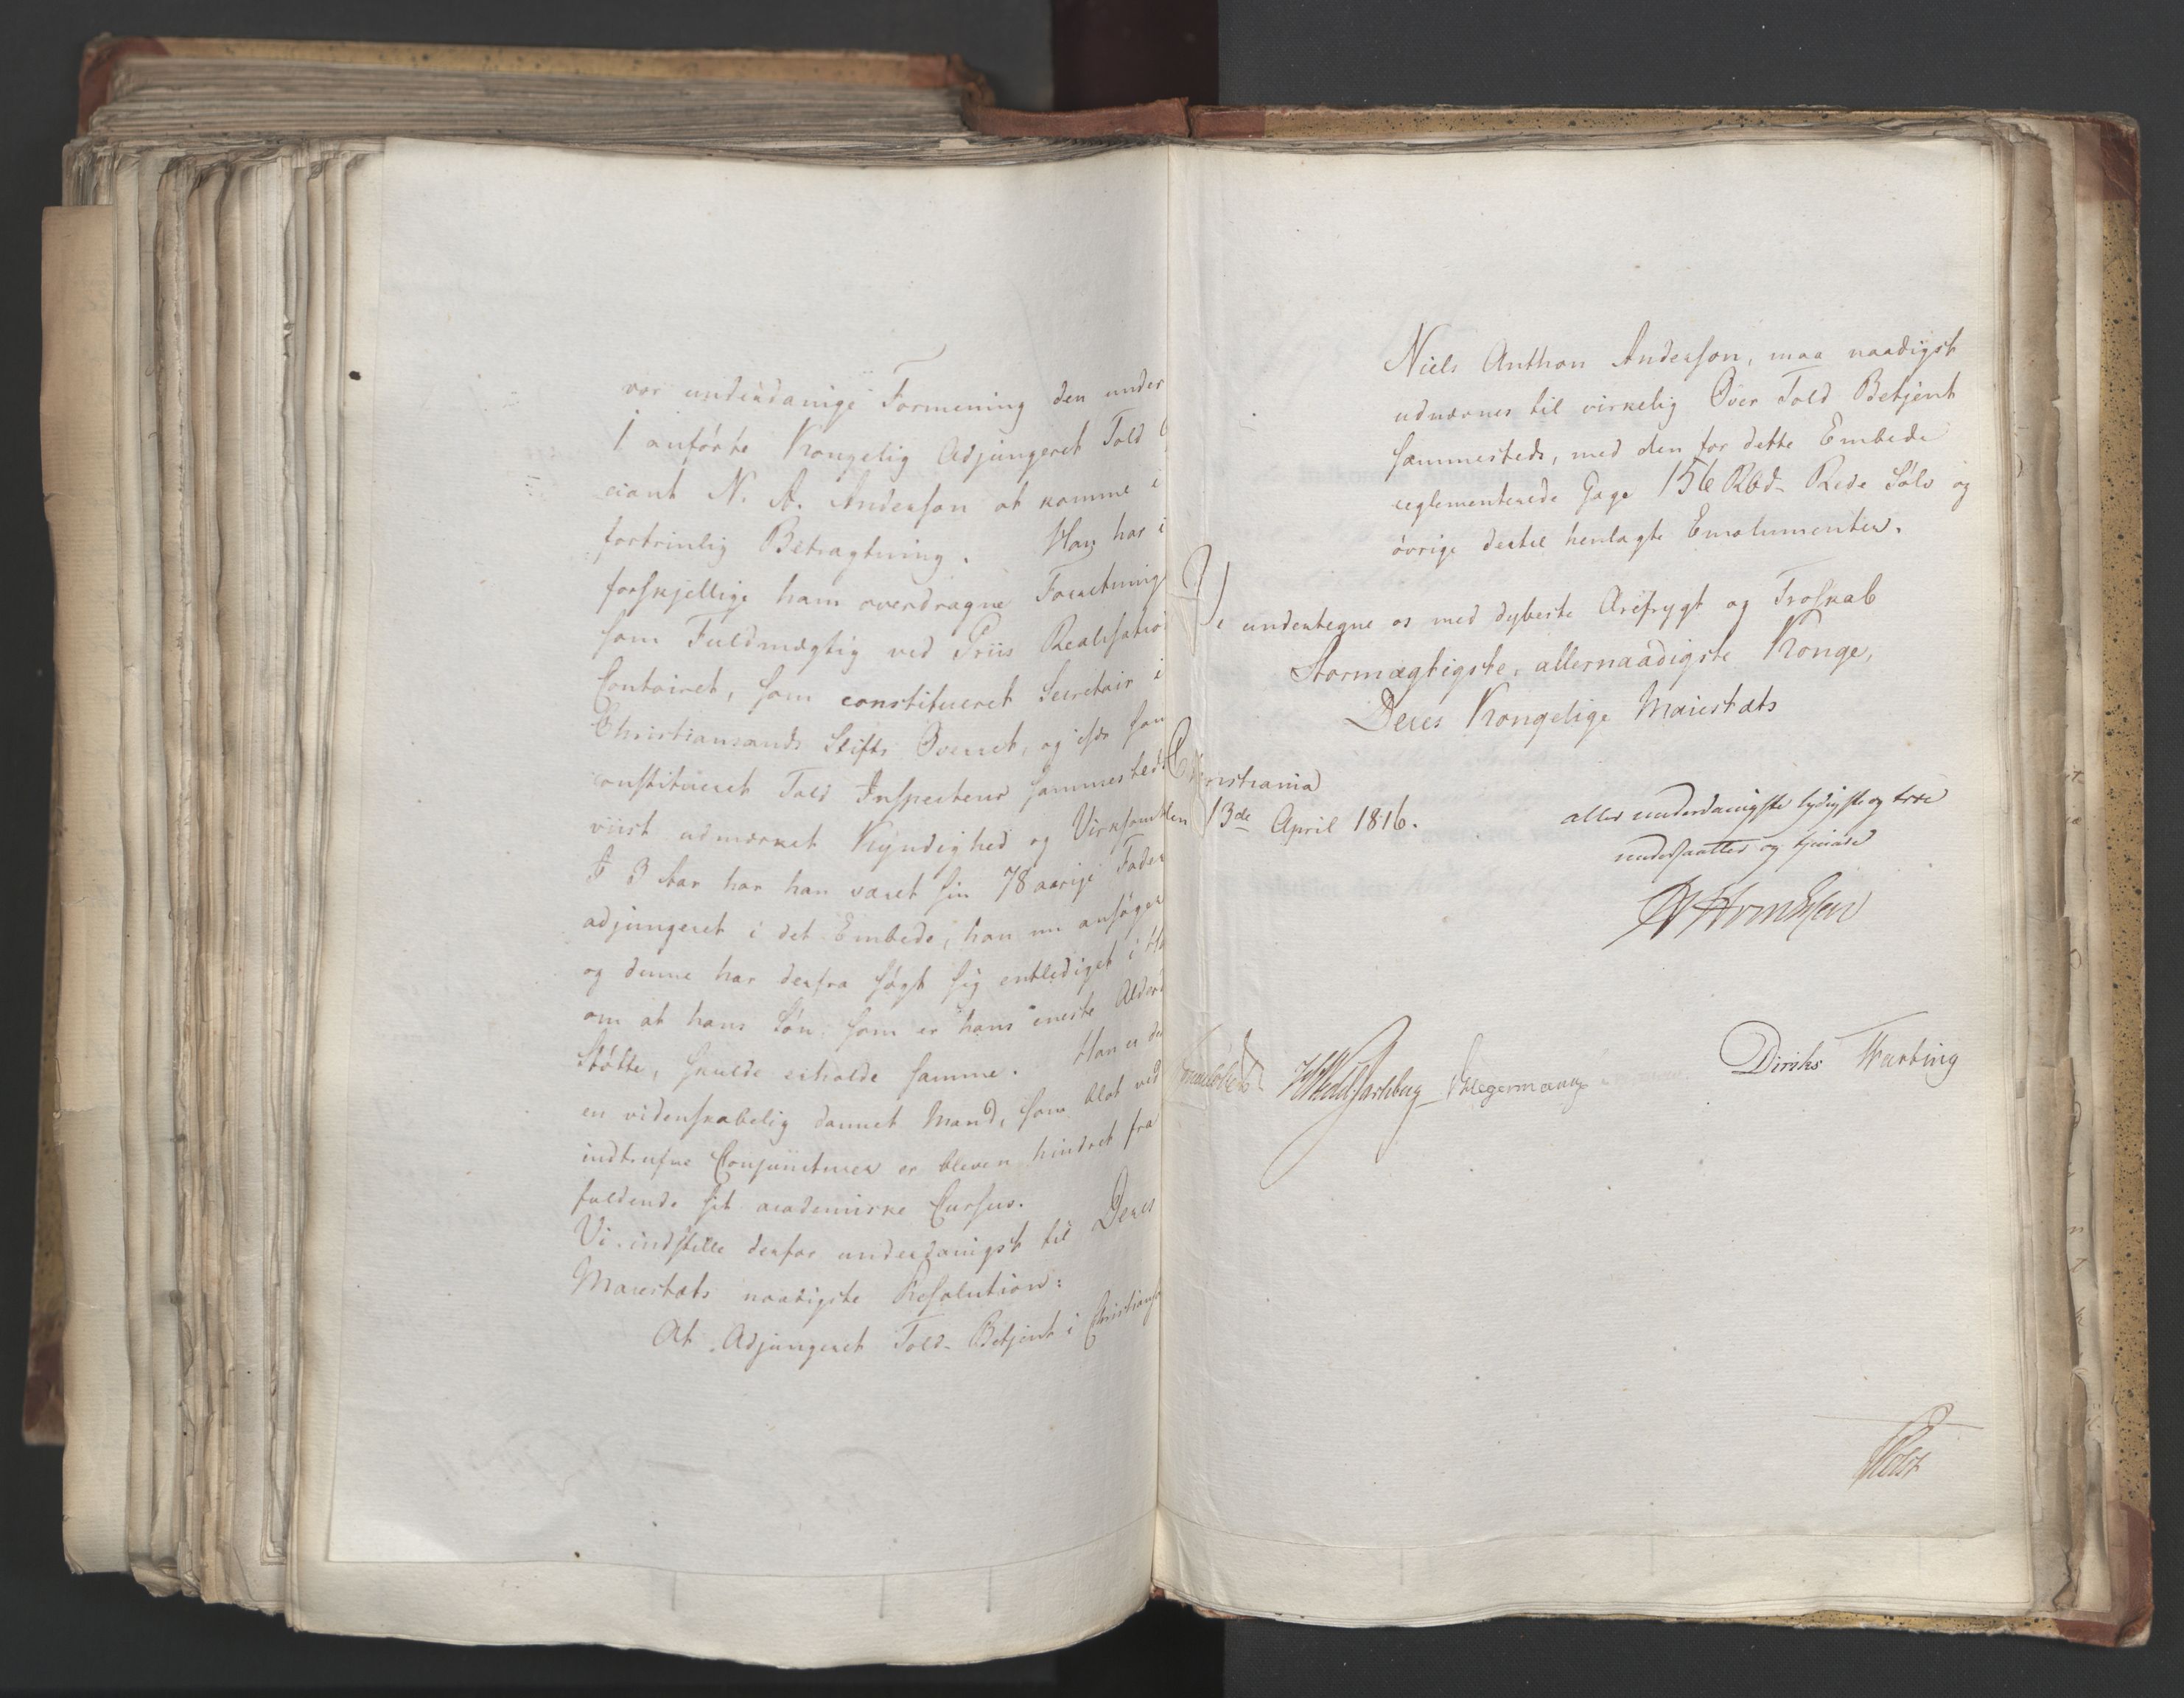 vor underdanige Formening den under
1 anførte Kongelig Adjungeret Told
ciant N. A. Anderson at komme i
fortrinlig Betragtning. Han har i
forskjellige ham overdragne Forretning
som Fuldmægtig ved Priis Realisation
Contoiret, som constitueret Secretair i
Christiansands Stifts Overret, og især som
constitueret Told Inspecteur sammesteds
viist udmærket Kyndighed og Virksomhed
I 3 Aar har han været sin 78 aarige Fader
adjungeret i det Embede, han nu ansøger
og denne har derfra søgt sig entlediget i
om at hans Søn, som er hans eneste Alderd
Støtte, skulde erholde samme. Han er
en videnskabelig dannet Mand, som blot ved
indtrufne Conjuncturer er bleven hindret fra
fuldende sit academiske Cursus.
Vi indstille derfor underdanigst til Deres
Maiestæts naadigste Resolution:
At Adjungeret Told-Betjent i Christians
Niels Anthon Anderson, maa naadigst
udnævnes til virkelig Over Told Betjent
sammesteds, med den for dette Embede
reglementerede Gage 156 Rbd. Rede Sølv og
øvrige dertil henlagte Emolumenter.
Vi undertegne os med dybeste Ærefrygt og Troskab
Stormægtigste, allernaadigste Konge,
Deres Kongelige Maiestæts
Christiania
den 13de April 1816.
allerunderdanigste lydigste og troe
undersaatter og tjenere
Sommerfeldt HWedelJarlsberg Hegermann Diriks Treschow
Holst